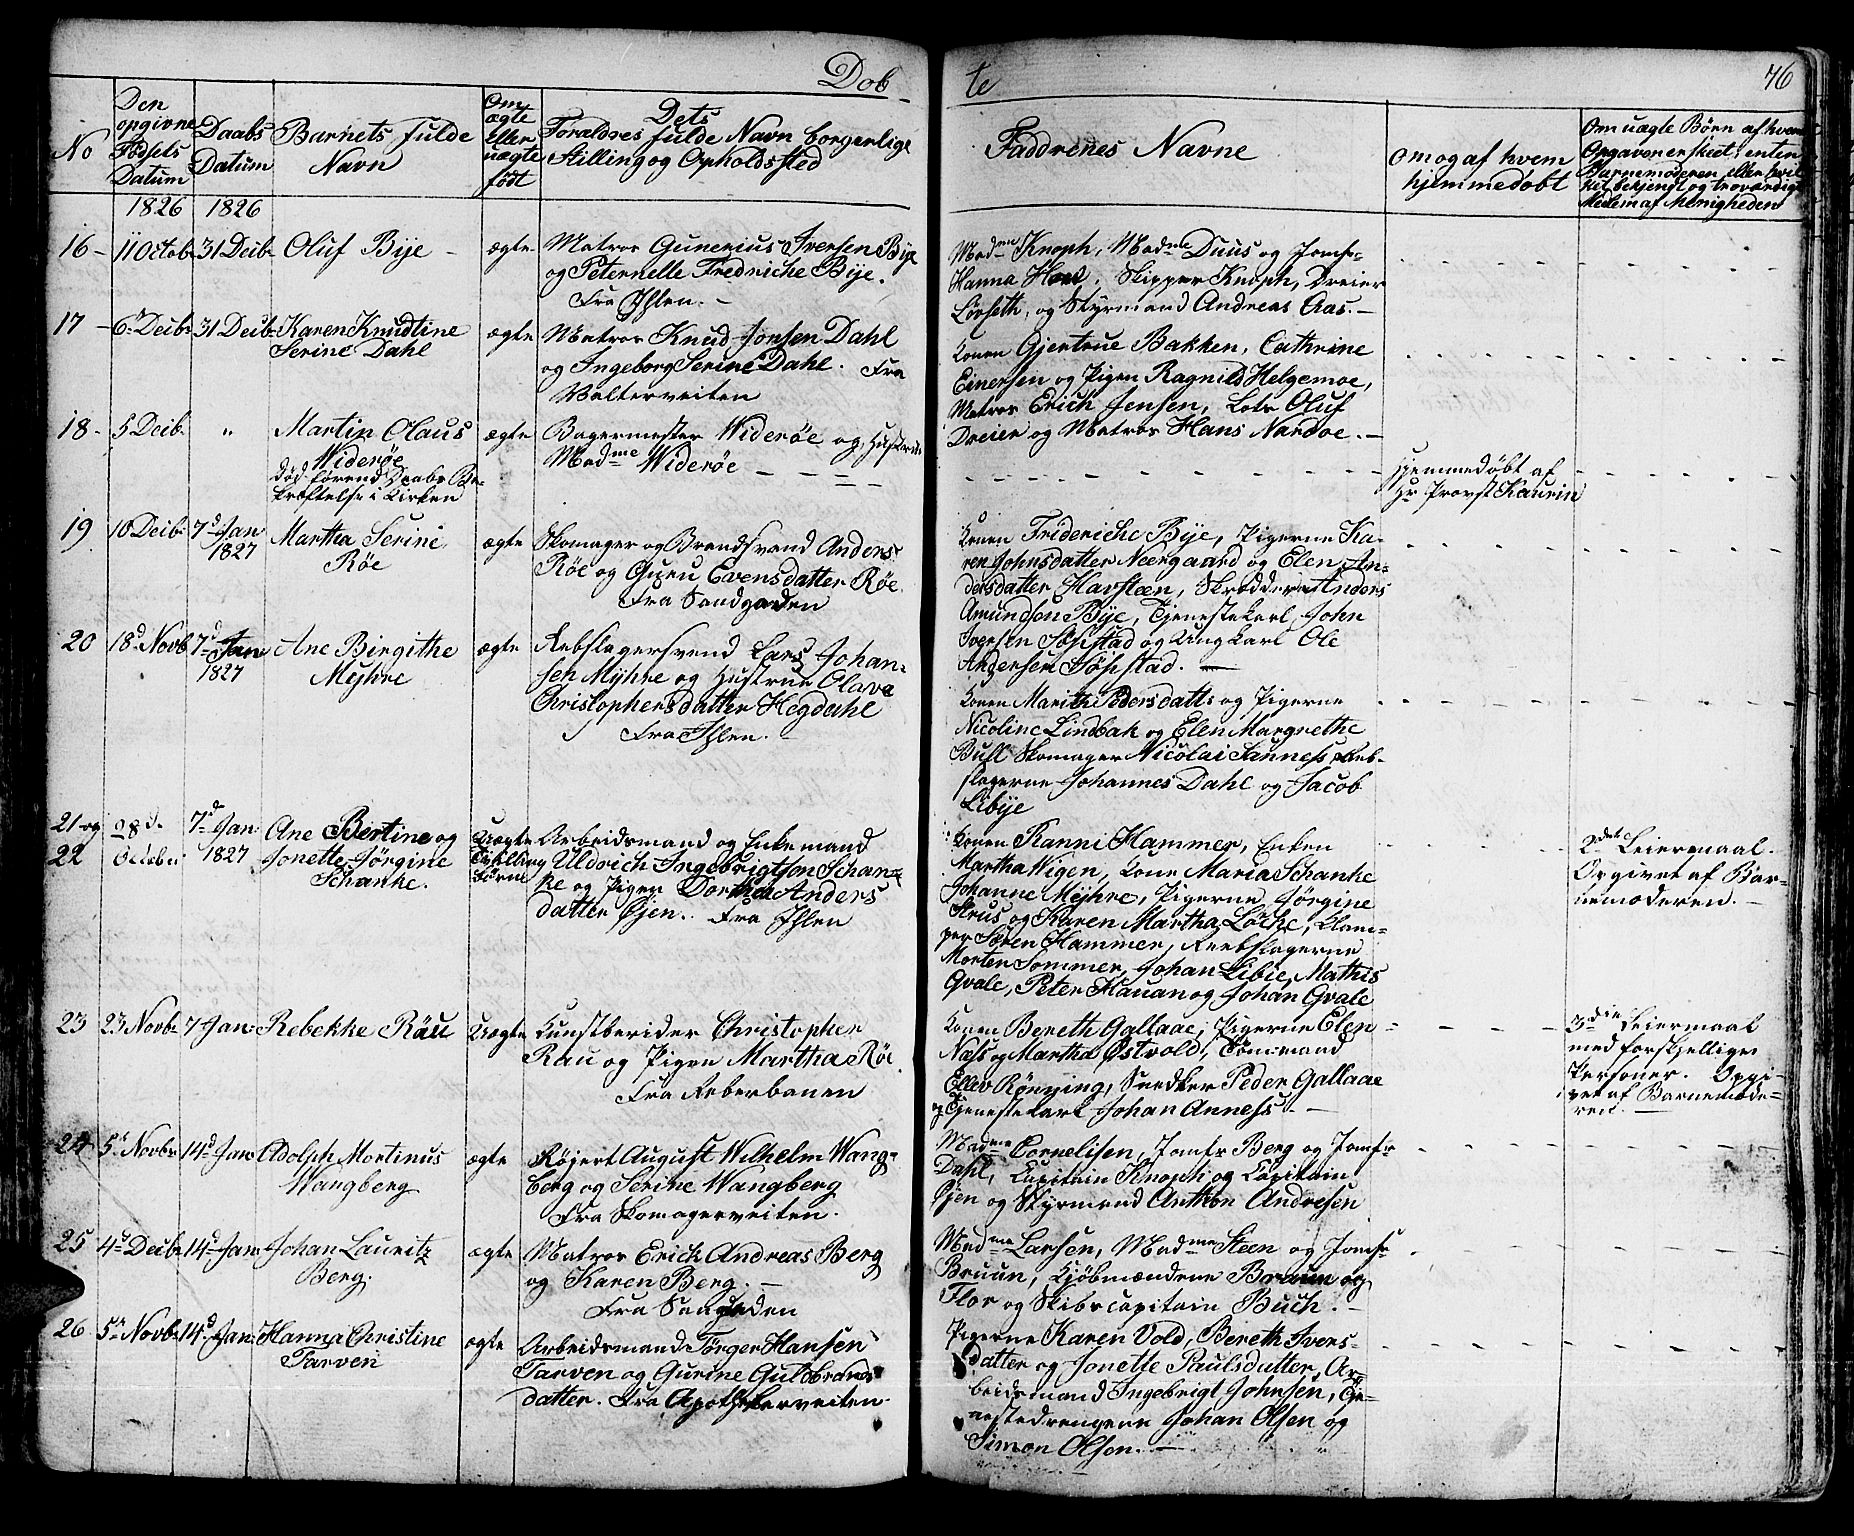 Dob
te
76
No
Den opgivne Fødsels Datum
Daabs Datum
Barnets fulde Navn
Om ægte eller uægte født
Dets Forældres fulde Navn borgerlige Stilling og Opholdssted
Faddrenes Navne
Om og af hvem hjemmedøbt
Om uægte Børn af hvem Opgaven er skeet, enten Barnemoderen eller hvilket bekjendt og troværdigt Medlem af Menigheden
1826 1826
16 - 11 Octob: 31 Decbr Oluf Bye - ægte
Matros Gunerius Iversen Bye
og Peternelle Fredriche Bye.
Fra Ihlen. -
Madme Knoph, Madme Duus og Jomfr
Hanna Skipper Knoph, Dreier
Lørseth, og Styrmand Andreas Aas. -
17 - 6 Decbr 31 Decbr Karen Knudtine
Serine Dahl
ægte
Matros Knud Jonsen Dahl
og Ingeborg Serine Dahl. Fra
Valterveiten
Konen Gjertrue Bakken, Cathrine
Einersen og Pigen Ragnild Helgemoe,
Matros Erich Jensen, Lots Oluf
Dreier og Matros Hans Nardoe. -
18 - 5 Decbr " Martin Olaus
Widerøe
død førend Daabs Be-
kræftelse i Kirken
ægte
Bagermester Widerøe og Hustrue
Madme Widerøe - -
Hjemmedøbt af
Hr Provst Kaurin
19 10 Decbr 7d Jan:
1827
Martha Serine
Røe
ægte
Skomager og Brandsvend Anders
Røe og Guru Evensdatter Røe
Fra Sandgaden
Konen Frideriche Bye, Pigerne Ka-
ren Johnsdatter Neergaard og Elen An-
dersdatter Havsteen, Skrædder Anders
Amundsen Bye, Tjenestekarl John
Iversen Søpstad og Ungkarl Ole
Andersen Søpstad. -
20 18d Novb 7d Jan
1827
Ane Birgithe
Myhre
ægte
Rebslagersvend Lars Johan-
sen Myhre og Hustrue Olava
Christophersdatter Hegdahl
Fra Ihlen.
Konen Marithi Pedersdatt: og Pigerne
Nicoline Lindbak og Elen Margrethe
Buhl Skomager Nicolai Sanness, Reb-
slagerne Johannes Dahl og Jacob
Libye
21 og
22
28d
Octobr:
7d Jan:
1827
Ane Bertine og
Jonette Jørgine
Schanke.
Uægte
Tvilling
Børn
Arbeidsmand og Enkemand
Uldrich Ingebrigtson Schan-
ke og Pigen Dorthea Anders
datter Øjen. Fra Ihlen
Konen Ranni Hammer, Enken
Martha Wigen, Kone Maria Schanke
Johanne Myhre, Pigerne Jørgine
Strus og Karen Martha Løcke, Klam-
per Søren Hammer, Reebslagerne
Morten Sommer, Johan Libie, Mathis
Qvale, Peter Hauan og Johan Qvale
2det Leiermaal.
Opgivet af Bar-
nemoderen. -
23 23 Novbr 7 Jan: Rebekke Räu Uægte
Kunstberider Christopher
Rau og Pigen Martha Røe
Fra Reberbanen
Konen Bereth Gallaae, Pigerne Elen
Næss og Martha Østvold, Tømmermand
Ellev Rønning, Snedker Peder Gallaae
og Tjenestekarl Johan Anness. -
3die Leiermaal
med forskjellige
Personer. Opgi-
vet af Barnemode-
ren. -
24 5 Novbr 14d Jan: Adolph Mortinus
Wangberg
ægte
Røjert August Wilhelm Wang-
berg og Serine Wangberg
Fra Skomagerveiten.
Madme Cornelisen, Jomfr Berg og Jomfr
Dahl, Capitain Knoph og Capitain
Øjen og Styrmand Anthon Andresen
25 4d Decbr 14d Jan Johan Lauritz
Berg.
ægte
Matros Erich Andreas Berg
og Karen Berg. -
Fra Sandgaden
Madme Larsen, Madme Steen og Jomfr
Bruun, Kjøbmændene Bruun og
Flor og Skibscapitain Buch. -
26 5 Novbr 14d Jan: Hanna Christine
Tarven
ægte
Arbeidsmand Tørger Hansen
Tarven og Gurine Guldbrands
datter. Fra Apothekerveiten
Pigerne Karen Vold, Bereth Ivers-
datter og Jonette Paulsdatter, Ar-
beidsmand Ingebrigt Johnsen, Tje-
nestedrengene Johan Olsen og
Simon Olsen. -